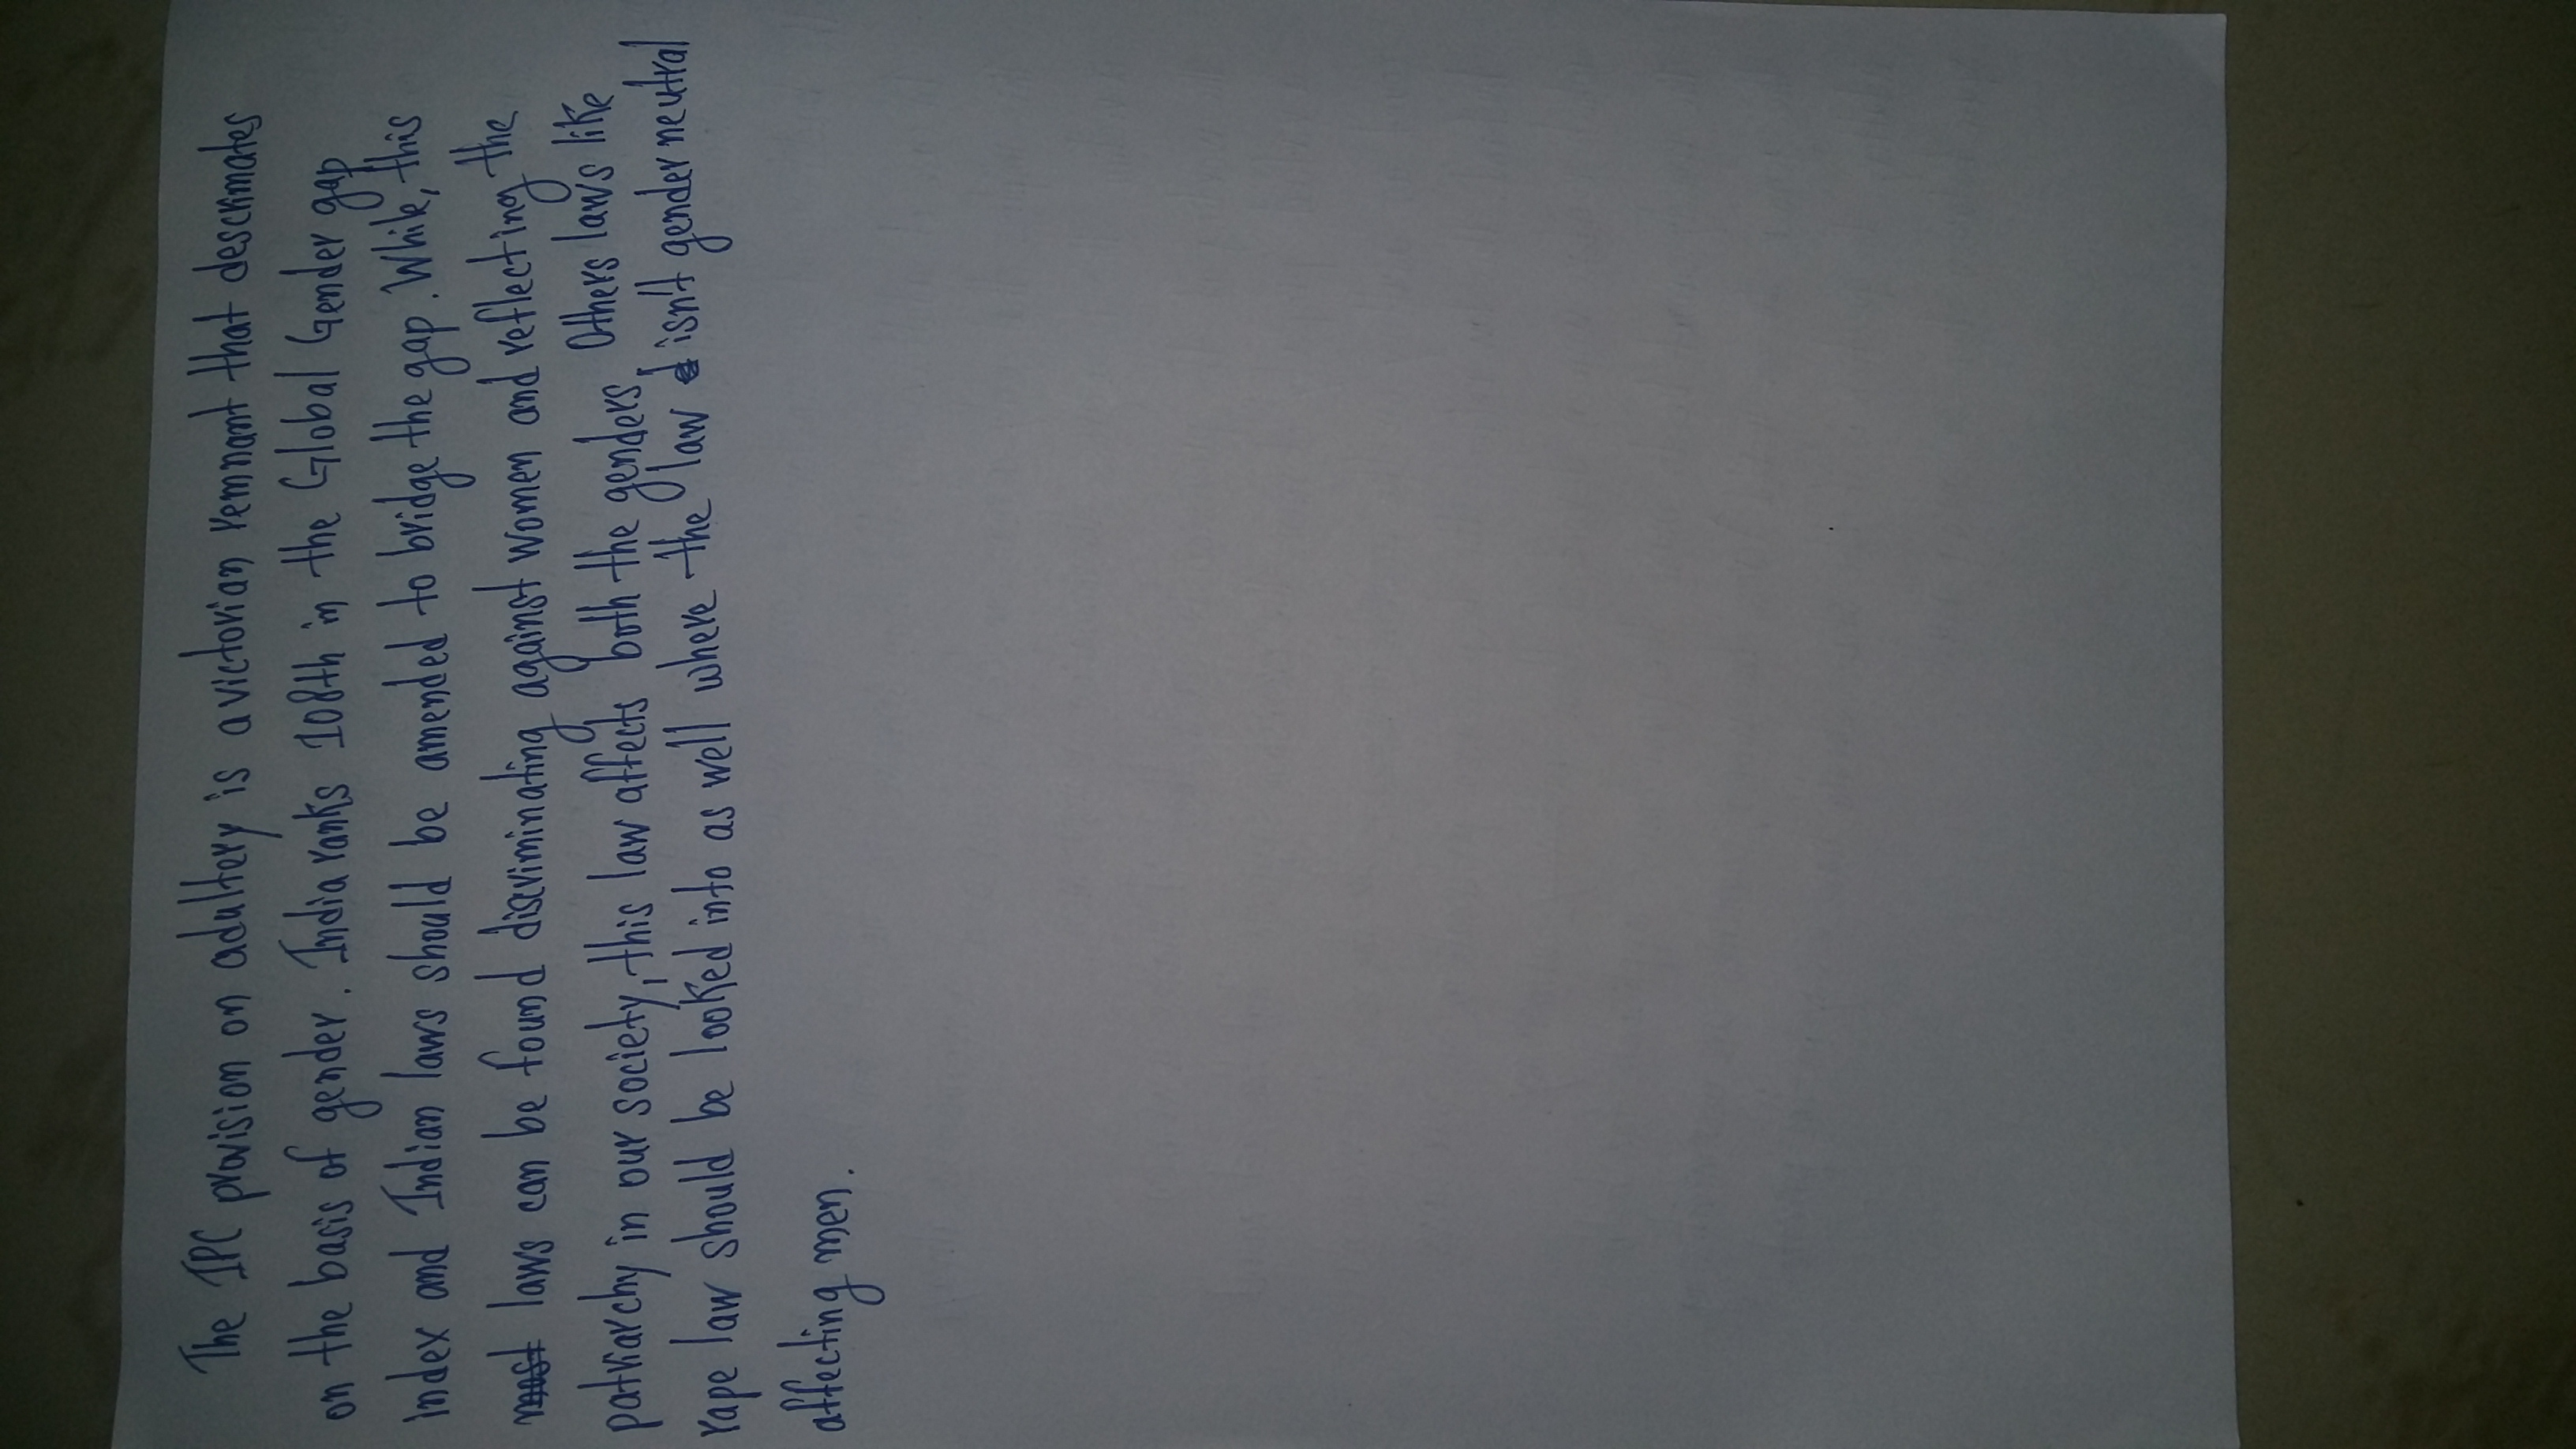 The IPC provision on adultery is a victorian remnant that descrimates
on the basis of gender. India ranks 108th in the Global Gender gap
index and Indian laws should be amended to bridge the gap. While, this
laws can be found discriminating against women and reflecting the
patriarchy in our society, this law affects both the genders. Others laws like
rape law should be looked into as well where the law isn't gender neutral
affecting men.